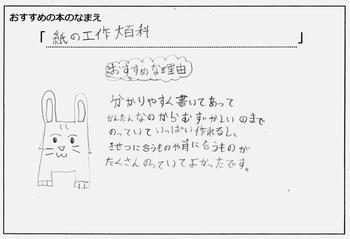 おすすめの本のなまえ
「紙の工作大百科」
おすすめな理由
分かりやすく書いてあって
かんたんなのからむずかしいのまで
のっていていっぱい作れるし、
きせつに合うものや月に合うものが
たくさんのっていてよかったです。